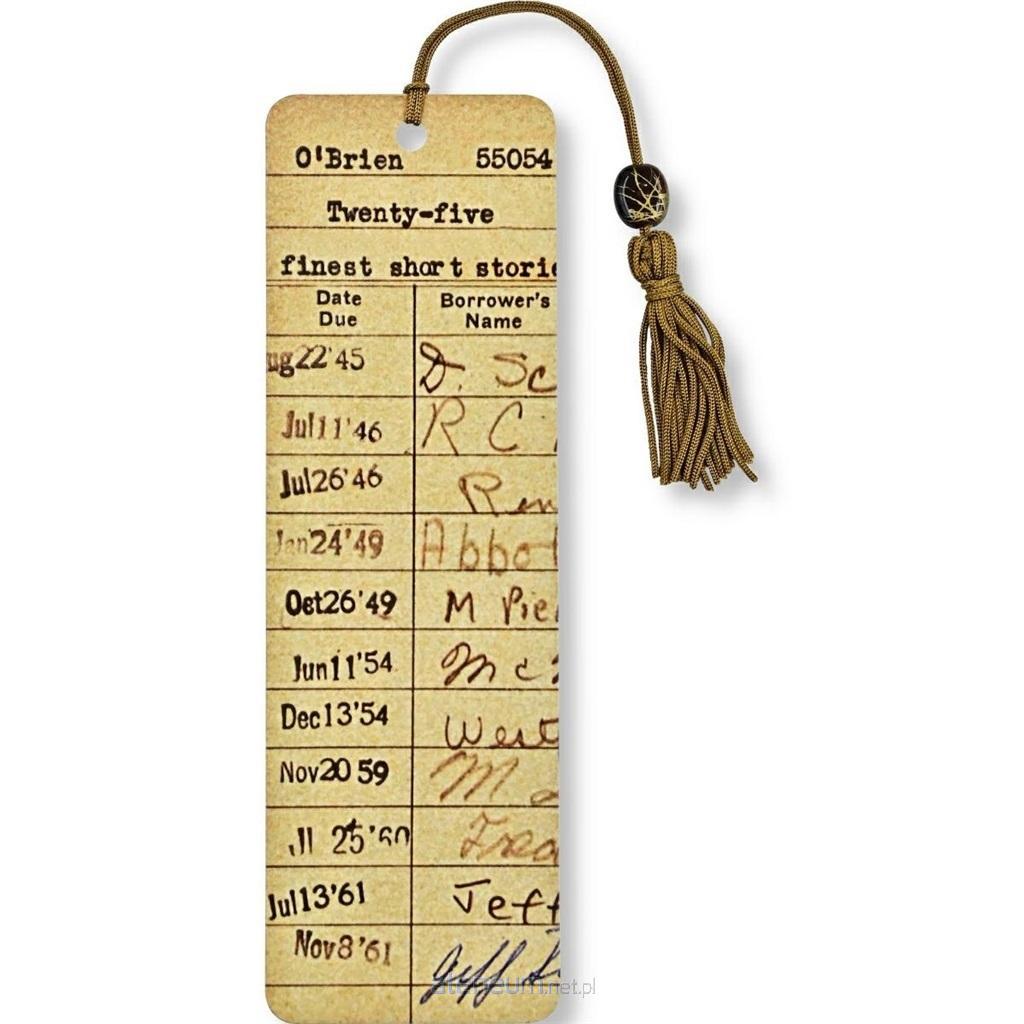 O'Brien 55054
Twenty-five
finest short storie
Date Due Borrower's Name
ug22'45 D. Sc
Jul11'46 R C
Jul26'46 Ren
Jan24'49 Abbot
Oct26'49 M Pie
Jun11'54 Mc
Dec13'54 West
Nov20 59 M
25'60 Fred
Jul13'61 Jeff
Nov8'61 Jeff
ateneum.net.pl